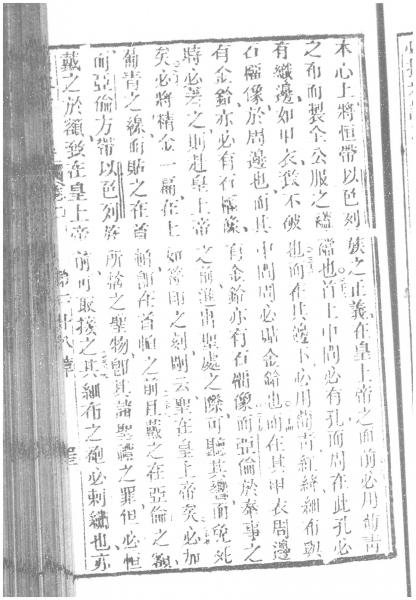 本心上將恒帶以色列族之正義在皇上帝之面前必用葡青
之布而製全公服之襤也首上中間必有孔而周在此孔必
有織邊如甲衣致不破也而在其邊下必用葡青紅絲細布與
石榴像於周邊也而其中間周必貼金鈴也而在其甲衣周邊
有金鈴亦必有石榴像有金鈴亦有石榴像而亞倫於奉事之
時必著之則赴皇上帝之前進出聖處之際可聽其響而免死
矣必將精金一扁在上如當印之刻剛云聖在皇上帝矣必加
葡青之線而貼之在首帽都在首帽之前且戴之在亞倫之額
而亞倫方帶以色列族所捨之聖物即其諸聖禮之罪但必恒
戴之於額致在皇上帝前可取接之其細布之袍必刺繡也亦
第二十八章